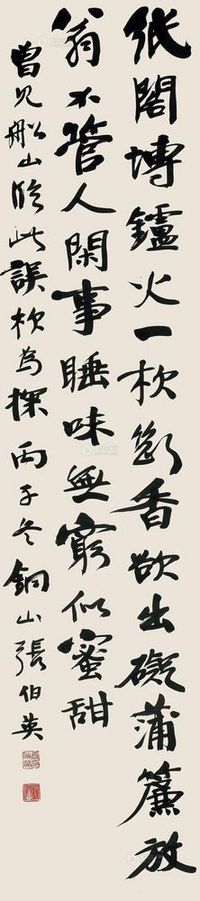 紙閣塼鑪火一杴斷香欲出礙蒲簾放
翁不管人閑事睡味無窮似蜜甜
曾見船山臨此誤杴為探丙子冬銅山張伯英